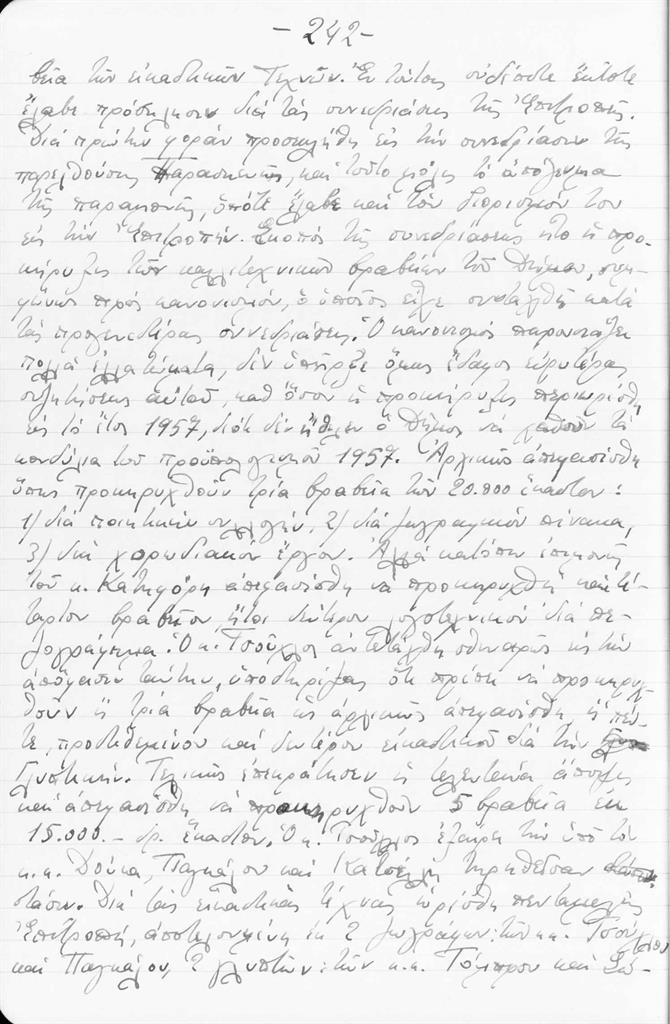 - 242 -
βεῖα τῶν εἰκαστικῶν Τεχνῶν. Ἐν τούτοις οὐδέποτε ἔκτοτε
ἔλαβε πρόσκλησιν διά τάς συνεδριάσεις τῆς Ἐπιτροπῆς.
Διά πρώτην φοράν προσεκλήθη εἰς τήν συνεδρίασιν τῆς
παρελθούσης Παρασκευῆς, καί τοῦτο μόλις τό ἀπόγευμα
τῆς παραμονῆς, ὁπότε ἔλαβε καί τόν διορισμόν του
εἰς τήν Ἐπιτροπήν. Σκοπός τῆς συνεδριάσεως ἦτο ἡ προ-
κήρυξις τῶν καλλιτεχνικῶν βραβείων τοῦ Δήμου, συμ-
φώνως πρός κανονισμόν, ὁ ὁποῖος εἶχε συνταχθῆ κατά
τάς προγενεστέρας συνεδριάσεις. Ὁ κανονισμός παρουσιάζει
πολλά ἐλαττώματα, δέν ὑπῆρξε ὅμως ἔδαφος εὐρυτέρας
συζητήσεως αὐτοῦ, καθ' ὅσον ἡ προκήρυξις περιωρίσθη
εἰς τό ἔτος 1957, διότι δέν ἤθελεν ὁ Δῆμος νά χαθοῦν τά
κονδύλια τοῦ προϋπολογισμοῦ 1957. Ἀρχικῶς ἀπεφασίσθη
ὅπως προκηρυχθοῦν τρία βραβεῖα τῶν 20.000 ἕκαστον:
1) διά ποιητικήν συλλογήν, 2) διά ζωγραφικόν πίνακα,
3) διά χορωδιακόν ἔργον. Ἀλλά κατόπιν ἐπιμονῆς
τοῦ κ. Κατηφόρη ἀπεφασίσθη νά προκηρυχθῆ καί τέ-
ταρτον βραβεῖον ἤτοι δεύτερον λογοτεχνικόν διά πε-
ζογράφημα. Ὁ κ. Τσοῦχλος ἀντετάχθη σθεναρῶς εἰς τήν
ἀπόφασιν ταύτην, ὑποστηρίξας ὅτι πρέπει νά προκηρυ-
χθοῦν ἤ τρία βραβεῖα ὡς ἀρχικῶς ἀπεφασίσθη, ἤ πέν-
τε, προστιθεμένου καί δευτέρου εἰκαστικοῦ διά τήν
Γλυπτικήν. Τελικῶς ἐπεκράτησεν ἡ τελευταία ἄποψις
καί ἀπεφασίσθη νά προκηρυχθοῦν 5 βραβεῖα ἐκ
15.000.- δρ. ἕκαστον. Ὁ κ. Τσοῦχλος ἐξαίρει τήν ὑπό τῶν
κ.κ. Δούκα, Παγκάλου καί Κατσέλη τηρηθεῖσαν
στάσιν. Διά τάς εἰκαστικάς τέχνας ὡρίσθη πενταμελής
Ἐπιτροπή, ἀποτελουμένη ἐκ 2 ζωγράφων: τῶν κ.κ. Τσούχλου
καί Παγκάλου, 2 γλυπτῶν: τῶν κ.κ. Τόμπρου καί